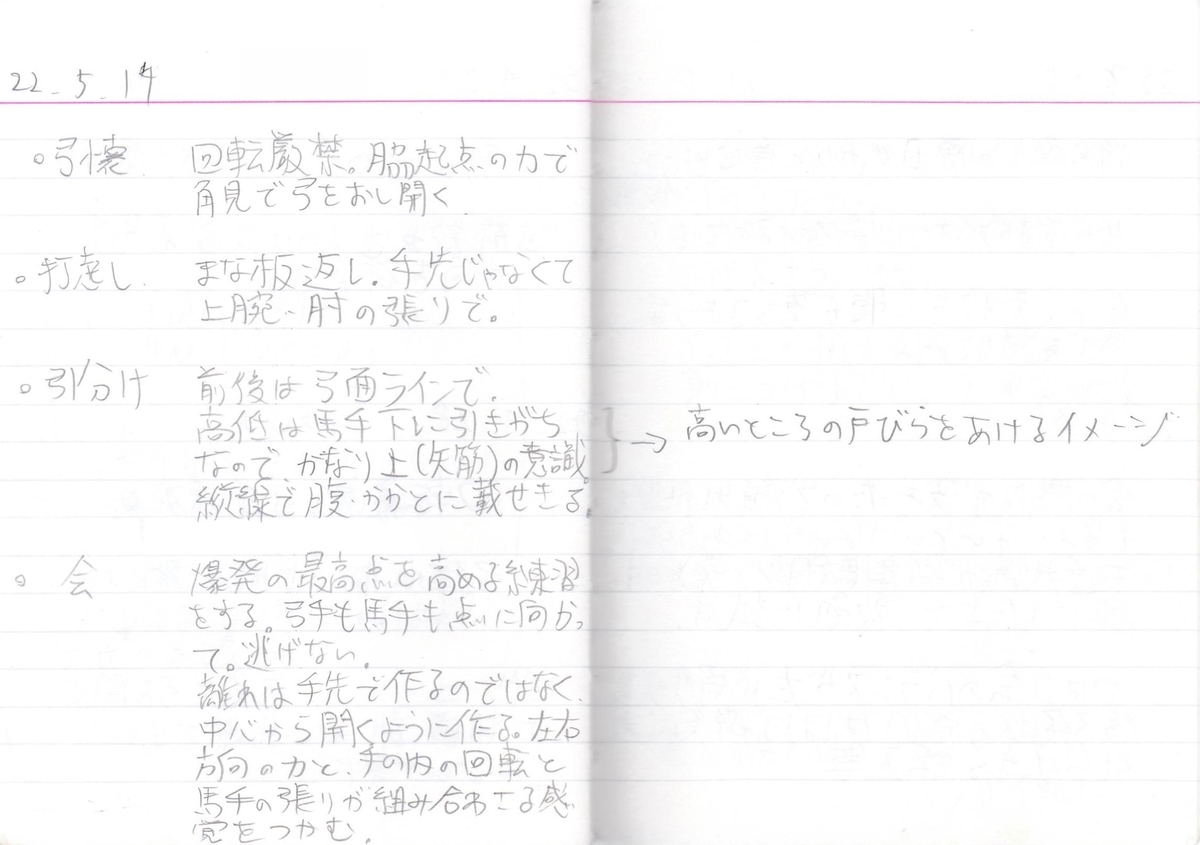 22.5.14
○弓懐 回転厳禁。脇起点の力で
角見で弓をおし開く
○打起し. まな板返し. 手先じゃなくて
上腕・肘の張りで。
○引分け 前後は弓面ラインで.
高低は馬手下に引きがち
なので、かなり上(矢筋)の意識。
縦線で腹・かかとに載せきる。
→ 高いところの戸びらをあけるイメージ
○会 爆発の最高点を高める練習
をする。弓手も馬手も点に向かっ
て。逃げない.
離れは手先で作るのではなく、
中心から開くように作る。左右
方向の力と、手の内の回転と
馬手の張りが組み合わさる感
覚をつかむ.